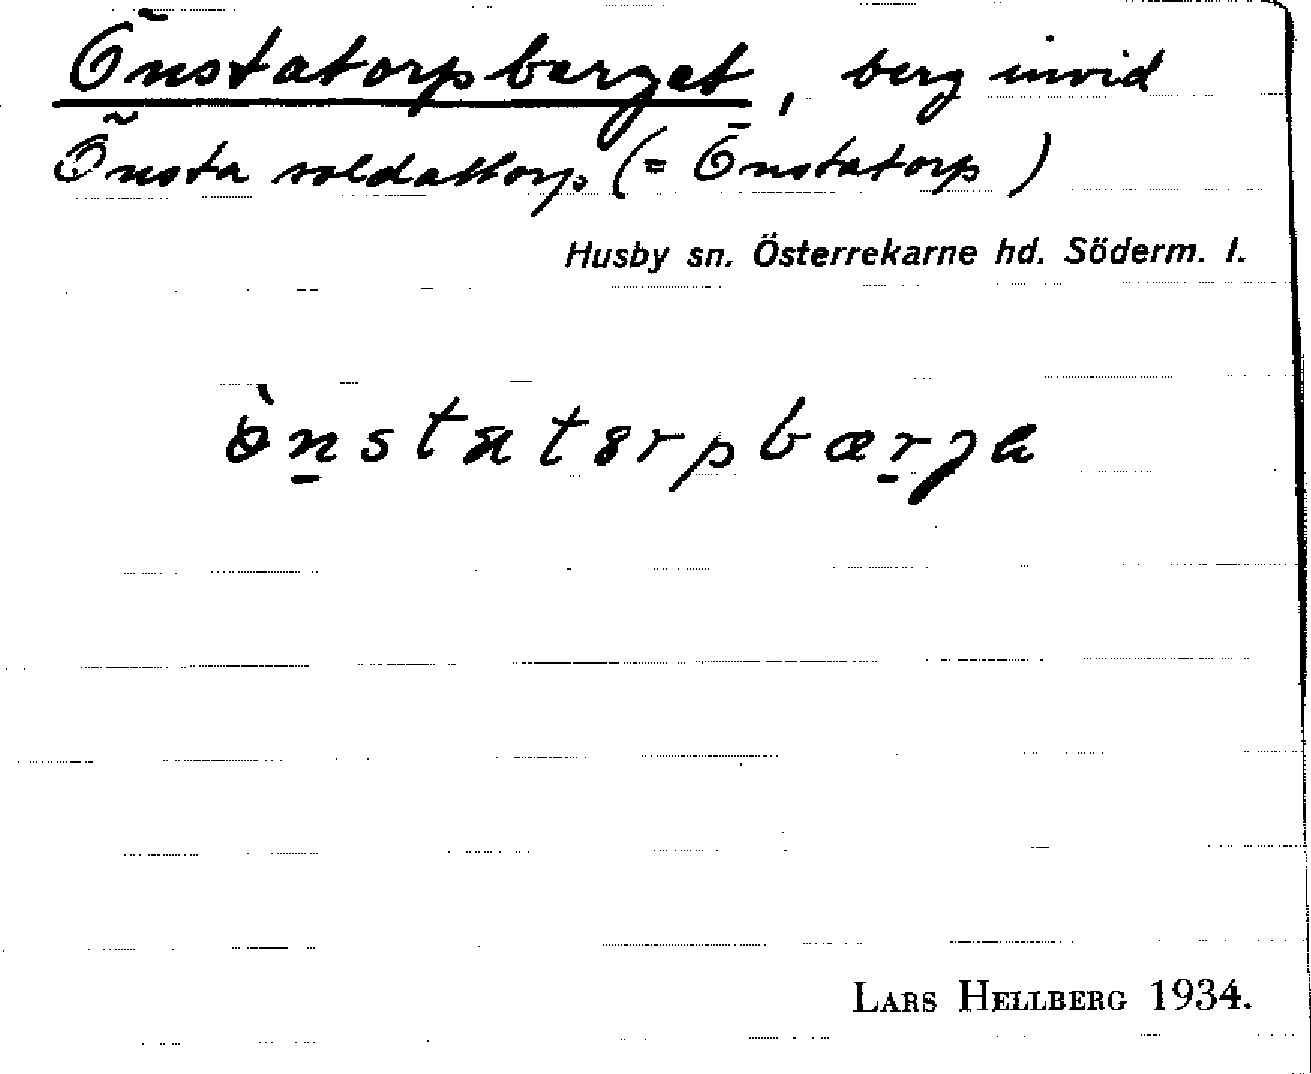 Önstatorpberget, berg invid
Önsta soldattorp (= Önstatorp)
Husby sn. Österrekarne hd. Söderm. l.
ò̱nstatɵrpbærga
LARS HELLBERG 1934.